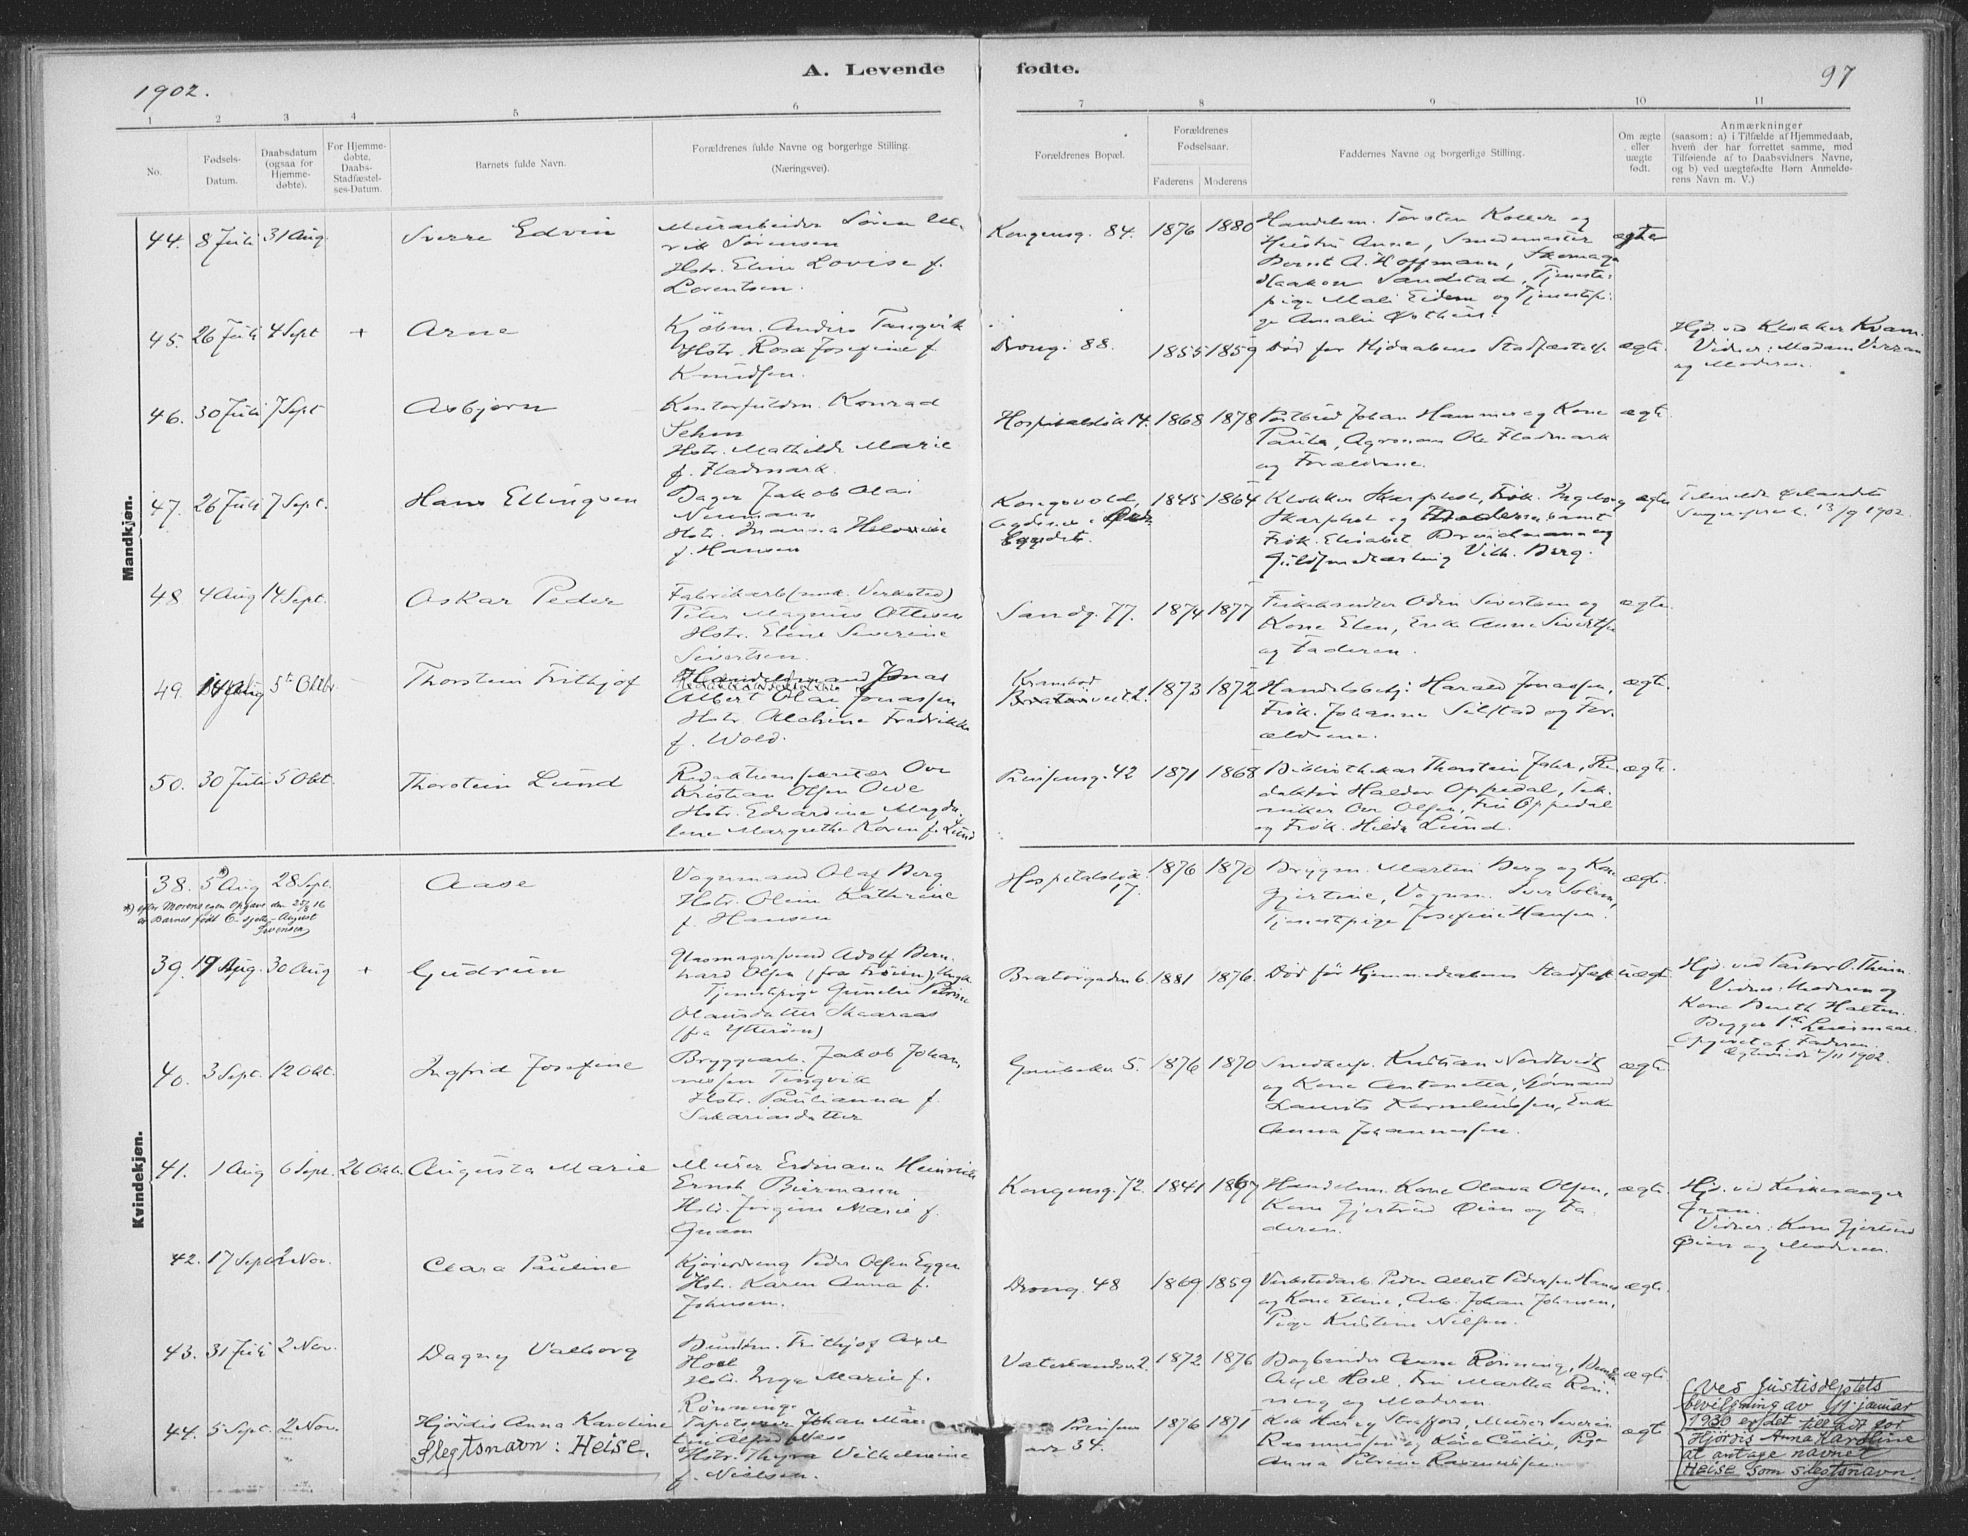 1902.
A. Levende fødte.
97
1 2 3 4 5 6 7 8 9 10 11
No.
Fødsels-
Datum.
Daabsdatum
(ogsaa for
Hjemme-
døbte).
For Hjemme-
døbte,
Daabs-
Stadfæstel-
ses-Datum.
Barnets fulde Navn.
Forældrenes fulde Navne og borgerlige Stilling.
(Næringsvei).
Forældrenes Bopæl.
Forældrenes
Fødselsaar.
Faderens Moderens
Faddernes Navne og borgerlige Stilling.
Om ægte
eller
uægte
født.
Anmærkninger
(saasom: a) i Tilfælde af Hjemmedaab,
hvem der har forrettet samme, med
Tilføiende af to Daabsvidners Navne,
og b) ved uægtefødte Børn Anmelde-
rens Navn m. V.)
Mandkjøn.
44. 8 Juli 31 Aug. Sverre Edvin
Murarbeider Søren Ul-
rik Sørensen
Hstr. Eline Lovise f.
Lorentsen.
Kongensg. 84. 1876 1880
Handelsm. Torsten Koller og
Hustru Anne, Smedemester
Bernt A. Hoffmann, Skomager
Haakon Sandstad, Tjeneste-
pige Mali Eidem og Tjenestepi-
ge Amalie
ægte
45. 26 Juli 4 Sept + Arne
Kjøbm. Anders Tangvik
Hstr. Rosa Josefine f.
Knudsen.
Drong. 88. 1855 1859
Død før Hjdaabens Stadfæstelse
ægte.
Hjd. ved Klokker Kvam.
Vidner: Madam
og Moderen.
46. 30 Juli 7 Sept Asbjørn
Kontorfuldm. Konrad
Sehm
Hstr. Mathilde Marie
f. Fladmark.
Hospitalsløk. 14. 1868 1878
Postbud Johan Hammer og Kone
Paula, Agronom Ole Fladmark
og Forældrene.
ægte
47. 26 Juli 7 Sept. Hans Ellingsen
Bager Jakob Olai
Neumann
Hstr.
f. Hansen
Kongsvold, 1845 1864
Klokker Skarpholt, Frøk. Ingeborg
Skarpholt og Moderen samt
Frøk. Elisabet
Guldsmedlærling Vilh. Berg.
ægte
Tilmeldt Ørlandets
Sogneprest 13/9 1902.
48 4 Aug 14 Sept. Oskar Peder
Fabrikarb (mek. Verksted)
Peter Magnus Ottesen
Hstr. Eline Severine
Sivertsen.
Sandg. 77. 1874 1877
Fiskehandler Odin Sivertsen og
Kone Elen, Enke Anne Sivertsen
og Faderen.
ægte
49. 14 Aug 5te Oktbr. Thorstein Frithjof
Albert Olai Jonassen
Hstr. Alchine Fredrikke
f. Wold.
1873 1872
Handelsbetj: Harald Jonassen,
Frøk. Johanne Silstad og For-
ældrene.
ægte.
50. 30 Juli 5 Okt. Thorstein Lund
Redaktionssekretær Ove
Kristian Olsen Ove
Hstr. Edvardine Magda-
lene Margrethe Koren f. Lund
Prinsensg. 42 1871 1868
Bibliothekar Thorstein Jahr, Re-
daktør Haldor Oppedal, Tek-
niker Ove Olsen, Fru Oppedal
og Frøk. Hilda Lund.
ægte.
Kvindekjøn.
38. 5*) Aug 28 Sept. Aase
*) efter Morens egen Opgave den 25/8 16
er Barnet født 6 - sjette - August
Svensen
Vognmand Olaf Berg
Hstr. Oline Kathrine
f. Hansen
Hospitalsløk. 17. 1876 1870
Bryggm. Martin Berg og Kone
Gjertine, Vognm. Iver Solem,
Tjenestpige Josefine Hansen.
ægte.
39. 19 Aug. 30 Aug + Gudrun
Glasmagersvend Adolf Bern-
hard Olsen (fra Frøien) Ungk.
Tjenestpige Gunelie Petrine
Olausdatter Skaaraas
(fra Ytterøen)
Bratørgaden 6. 1881 1876.
Død før Hjemmedaabens Stadfæst
uægt.
Hjd. ved Pastor O. Theim.
Vidner: Moderen og
Kone Bereth Halten.
Begges 1ste Leiermaal.
Opgivet af Faderen.
1/11 1902.
40. 3 Sept. 12 Okt. Ingfrid Josefine
Bryggearb. Jakob Johan-
nessen Tingvik
Hstr. Paulianna f.
Sakariasdatter
5. 1876 1870
Snedkersv. Kristian Nordtvedt
og Kone Antonetta, Sjømand
Laurits Korneliussen, Enke
Anna Johannessen.
ægte
41. 1 Aug 6 Sept. 26 Okt. Augusta Marie
Murer Erdmann Heinrich
Ernst Biermann.
Hstr. Jørgine Marie f.
Gram
Kongensg. 72. 1841 1867
Handelsm. Kone Olava Olsen,
Kone Gjertrud Øien og Fa-
deren.
ægte.
Hjd. ved Kirkesanger
Gran.
Vidner: Kone Gjertrud
Øien og Moderen.
42. 17 Sept 2 Nov. Clara Pauline
Kjøredreng Peder Olsen Eggen
Hstr. Karen Anna f.
Johnsen.
Drong. 48 1869 1859
Verkstedarb. Peder Albert Pedersen
og Kone Eline, Arb. Johan Johnsen,
Pige Kristine Nilsen.
ægte.
43. 31 Juli 2 Nov. Dagny Valborg
Frithjof Axel
Hoel
Hstr. Inga Marie f.
Rønning.
2. 1872 1876
Bogbinder Arne Rønning,
Axel Hoel, Fru Martha Røn-
ning og Moderen
ægte.
44. 5 Sept. 2 Nov. Hjørdis Anna Karoline
Slegtsnavn: Heise.
Tapetserer Johan Mar-
tin Alfred Næss
Hstr. Thyra Vilhelmine
f. Nielsen.
34. 1876 1871
Murer Severin
Rasmussen og Kone Cecilie, Pige
Anna Petrine Rasmussen.
ægt
(Ved Justisdeptets
bevillgning av 17 januar
1930 er det tilladt for
Hjördis Anna Karoline
at antage navnet
Heise som slegtsnavn.